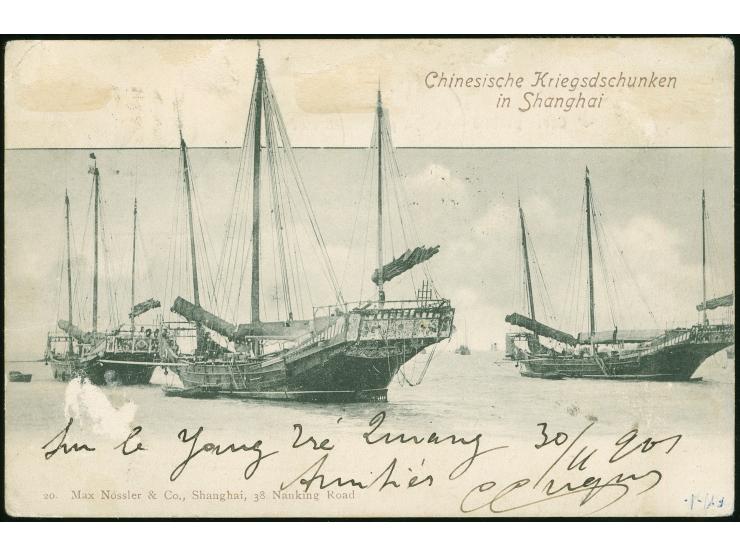 Chinesische Kriegsdschunken
in Shanghai
Sur le Yang Tsé 30/11 901
Amitiés
20. Max Nössler & Co., Shanghai, 38 Nanking Road